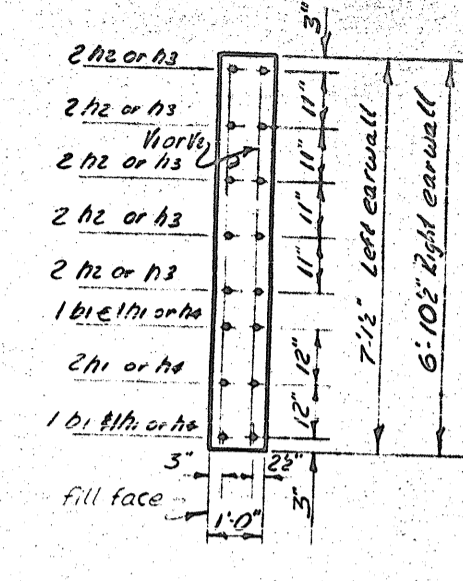 3"
2 h2 or h3
2 h2 or h3
V1 or V2
2 h2 or h3
2 h2 or h3
2 h2 or h3
1 b1 & 1 h1 or h4
2 h1 or h4
1 b1 & 1 h1 or h4
11"
11"
11"
11"
12"
12"
7'-1½" Left earwall
6'-10½" Right earwall
3"
2½"
3"
fill face
1'-0"